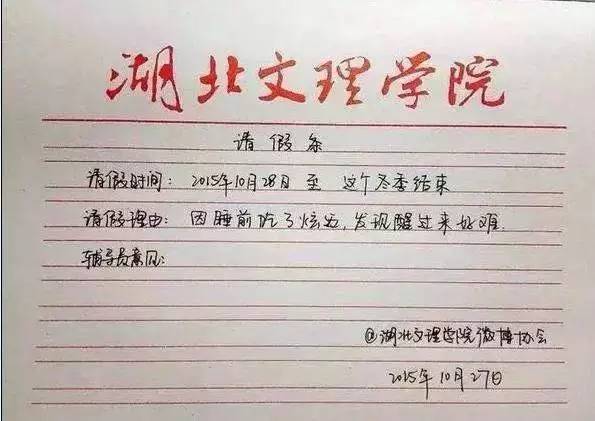 湖北文理学院
请假条
请假时间：2015年10月28日 至 这个冬季结束
请假理由：因睡前吃了炫迈，发现醒过来好难.
辅导员意见：
@湖北文理学院微博协会
2015年10月27日